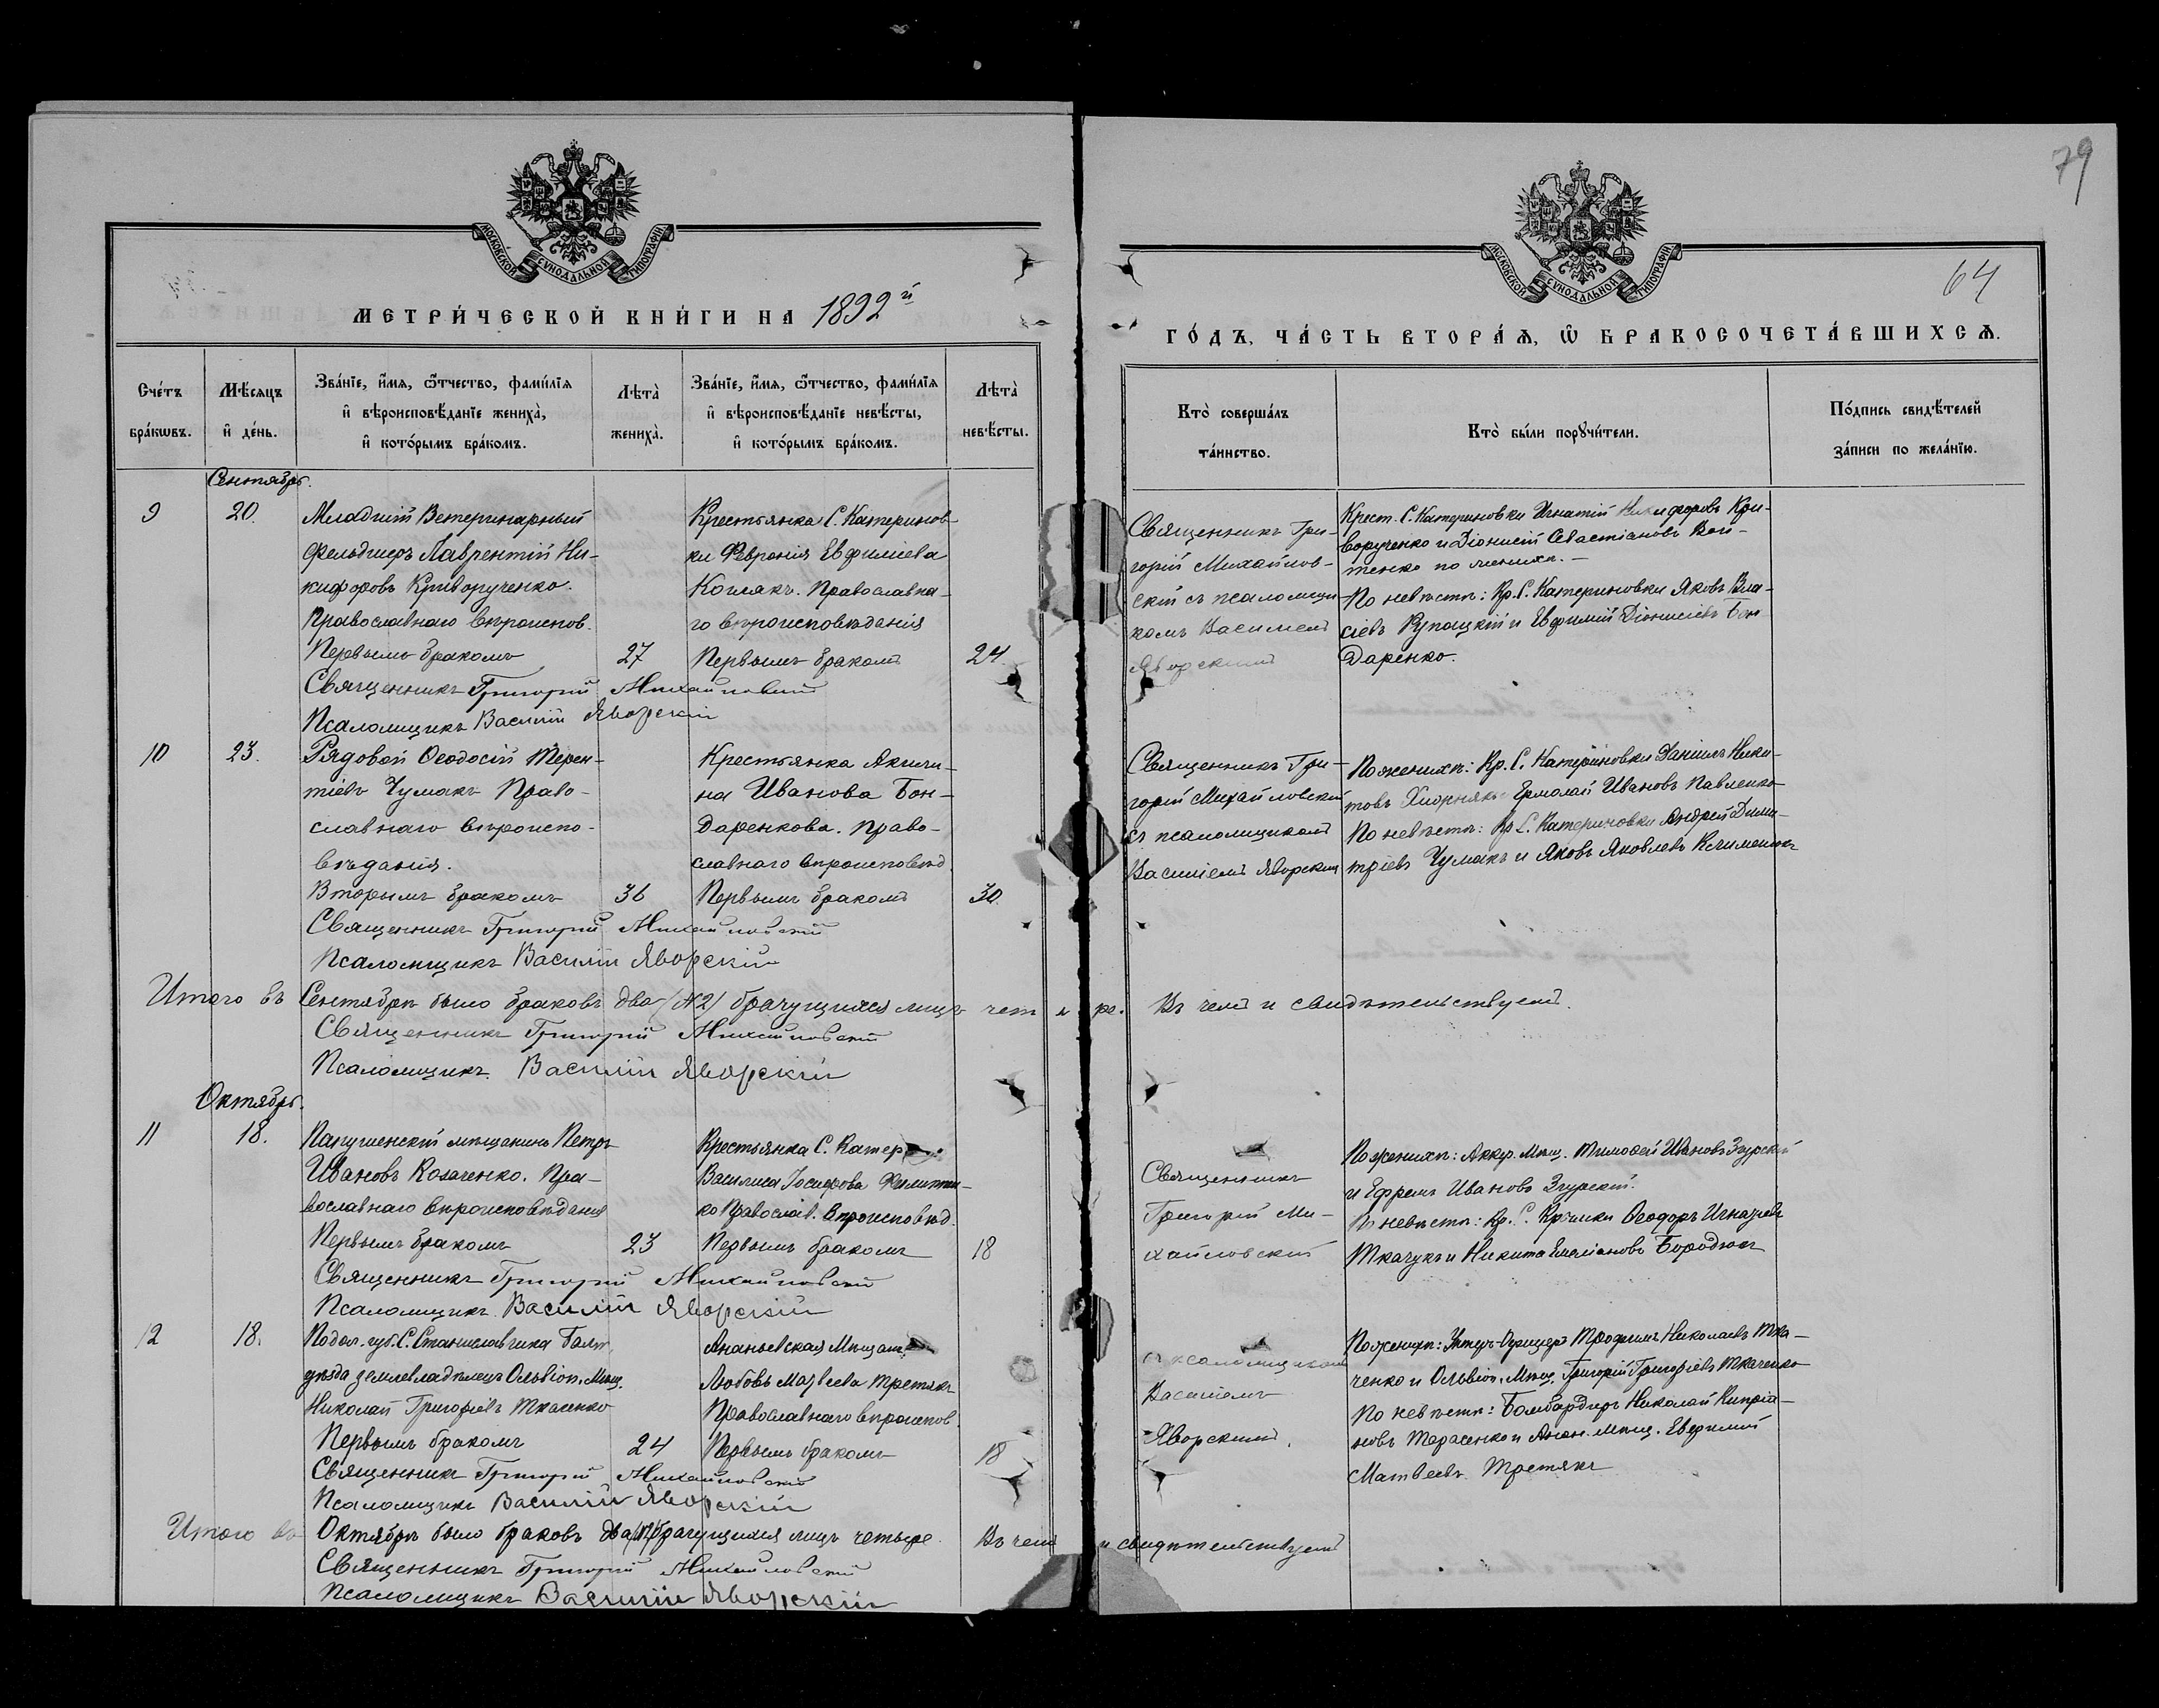 79
МОСКОВСКОЙ СѴНОДАЛЬНОЙ ТИПОГРАФІИ
МОСКОВСКОЙ СѴНОДАЛЬНОЙ ТИПОГРАФІИ
64
МЕТРИ́ЧЕСКОЙ КНИ́ГИ НА 1892 й
ГО́ДЪ, ЧА́СТЬ ВТОРА́Ѧ, Ѡ҆ БРАКОСОЧЕТА́ВШИХСѦ.
Сче́тъ
бра́кωвъ.
Мѣ́сяцъ
и҆ де́нь.
Зва́нїе, и҆́мѧ, ѻ҆́тчество, фами́лїѧ
и҆ вѣроисповѣ́данїе жениха̀,
и҆ кото́рымъ бра́комъ.
Лѣта̀
жениха̀.
Зва́нїе, и҆́мѧ, ѻ҆́тчество, фами́лїѧ
и҆ вѣроисповѣ́данїе невѣ́сты,
и҆ кото́рымъ бра́комъ.
Лѣта̀
невѣ́сты.
Кто̀ соверша́лъ
та́инство.
Кто̀ бы́ли порꙋчи́тели.
По́дпись свидѣ́телей
за́писи по жела́нїю.
Сентябрь.
9
20.
Младшій Ветеринарный
Фельдшеръ Лаврентій Ни-
кифоровъ Криворученко.
Православнаго вѣроиспов.
Первымъ бракомъ
27
Крестьянка С. Катеринов-
ки Февронія Евфиміева
Когляк. Православна-
го вѣроисповѣданія
Первымъ бракомъ
24.
Священникъ Гри-
горій Михайлов-
скій съ псаломщи-
комъ Василіемъ
Яворскимъ
Крест. С. Катериновки Игнатій Никифоровъ Кри-
ворученко и Діонисій Севастіановъ Вой-
тенко по жениху.-
По невѣстѣ: Кр. С. Катериновки Яковъ Вла-
сіевъ и Евфимій Діонисіевъ Бон
даренко.
Священникъ Григорій Михайловскій
Псаломщикъ Василій Яворскій
10
23.
Рядовой Ѳеодосій Терен-
тіевъ Чумакъ Право-
славнаго вѣроиспо-
вѣданія.
Вторымъ бракомъ
36
Крестьянка Акили-
на Иванова Бон-
даренкова. Право-
славнаго вѣроисповѣд.
Первымъ бракомъ
30.
Священникъ Гри-
горій Михайловскій
съ псаломщикомъ
Василіемъ Яворскимъ
По женихѣ: Кр. С. Катериновки Даніилъ Ники-
товъ Ермолай Ивановъ Павленко
По невѣстѣ: Кр. С. Катериновки Андрей Дими-
тріевъ Чумакъ и Яковъ Яковлевъ Клименюкъ
Священникъ Григорій Михайловскій
Псаломщикъ Василій Яворскій
Итого въ Сентябрѣ было браковъ два /№2/ брачущихся лицъ четыре. Въ чемъ и свидѣтельствуемъ.
Священникъ Григорій Михайловскій
Псаломщикъ Василій Яворскій
Октябрь.
11
18.
Папушенскій мѣщанинъ Петръ
Ивановъ Козаченко. Пра-
вославнаго вѣроисповѣданія
Первымъ бракомъ
23
Крестьянка С. Катер
Василиса Іосифова
ко Православ. вѣроисповѣд.
Первымъ бракомъ
18
Священникъ
Григорій Ми-
хайловскій
По женихѣ: Аккер. мѣщ. Тимоѳей Ивановъ Згурскій
и Ефремъ Ивановъ Згурскій.
По невѣстѣ: Кр. С. Ѳеодоръ Игнатіевъ
Ткачукъ и Никита Емеліановъ Бородюкъ
Священникъ Григорій Михайловскій
Псаломщикъ Василій Яворскій
12
18.
Подол. губ. С. Станиславчика Балт.
уѣзда землевладѣлецъ Ольвіоп. Мѣщ.
Николай Григоріевъ Ткаченко
Первымъ бракомъ
24
Ананьевская Мѣщан
Любовь Матвеева Третякъ
Православнаго вѣроиспов.
Первымъ бракомъ
18
псаломщикомъ
Василіемъ
Яворскимъ.
По женихѣ: Унтеръ-Офицеръ Трофимъ Николаевъ Тка-
ченко и Ольвіоп. Мѣщ. Григорій Григоріевъ Ткаченко
По невѣстѣ: Бомбардиръ Николай Кипрія-
новъ Тарасенко и Анан. мѣщ. Евфимій
Матвеевъ Третякъ
Священникъ Григорій Михайловскій
Псаломщикъ Василій Яворскій
Итого въ Октябрѣ было браковъ два /№2/ брачущихся лицъ четыре. Въ чемъ и свидѣтельствуемъ
Священникъ Григорій Михайловскій
Псаломщикъ Василій Яворскій